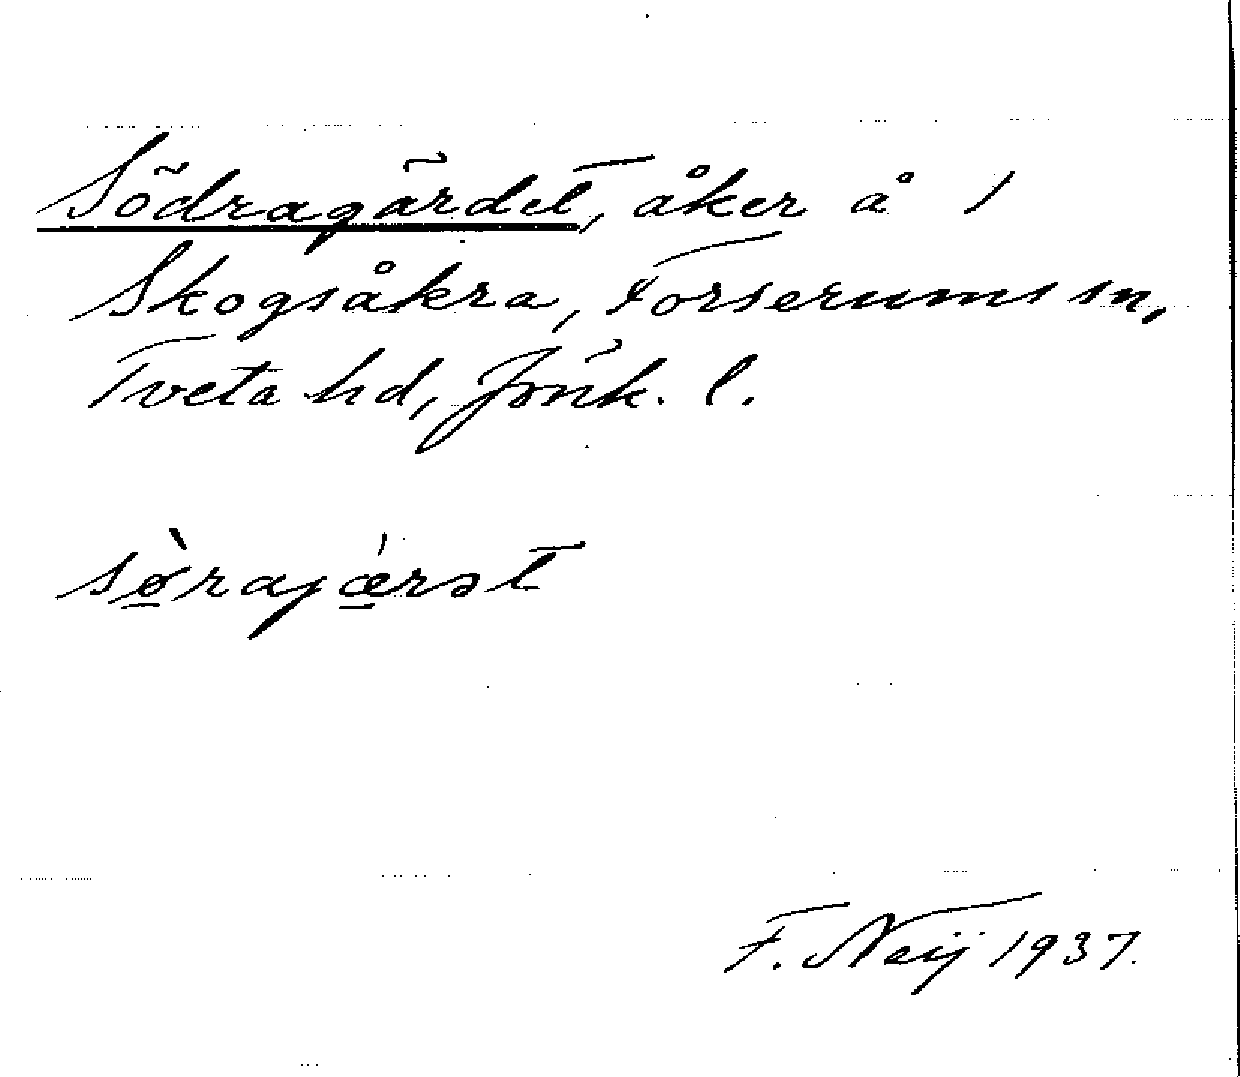 Södragärdet, åker å 1
Skogsåkra, Forserums sn,
Tveta hd, Jönk. l.
sø̠̀rajǽ̠rət
F. Neij 1937.